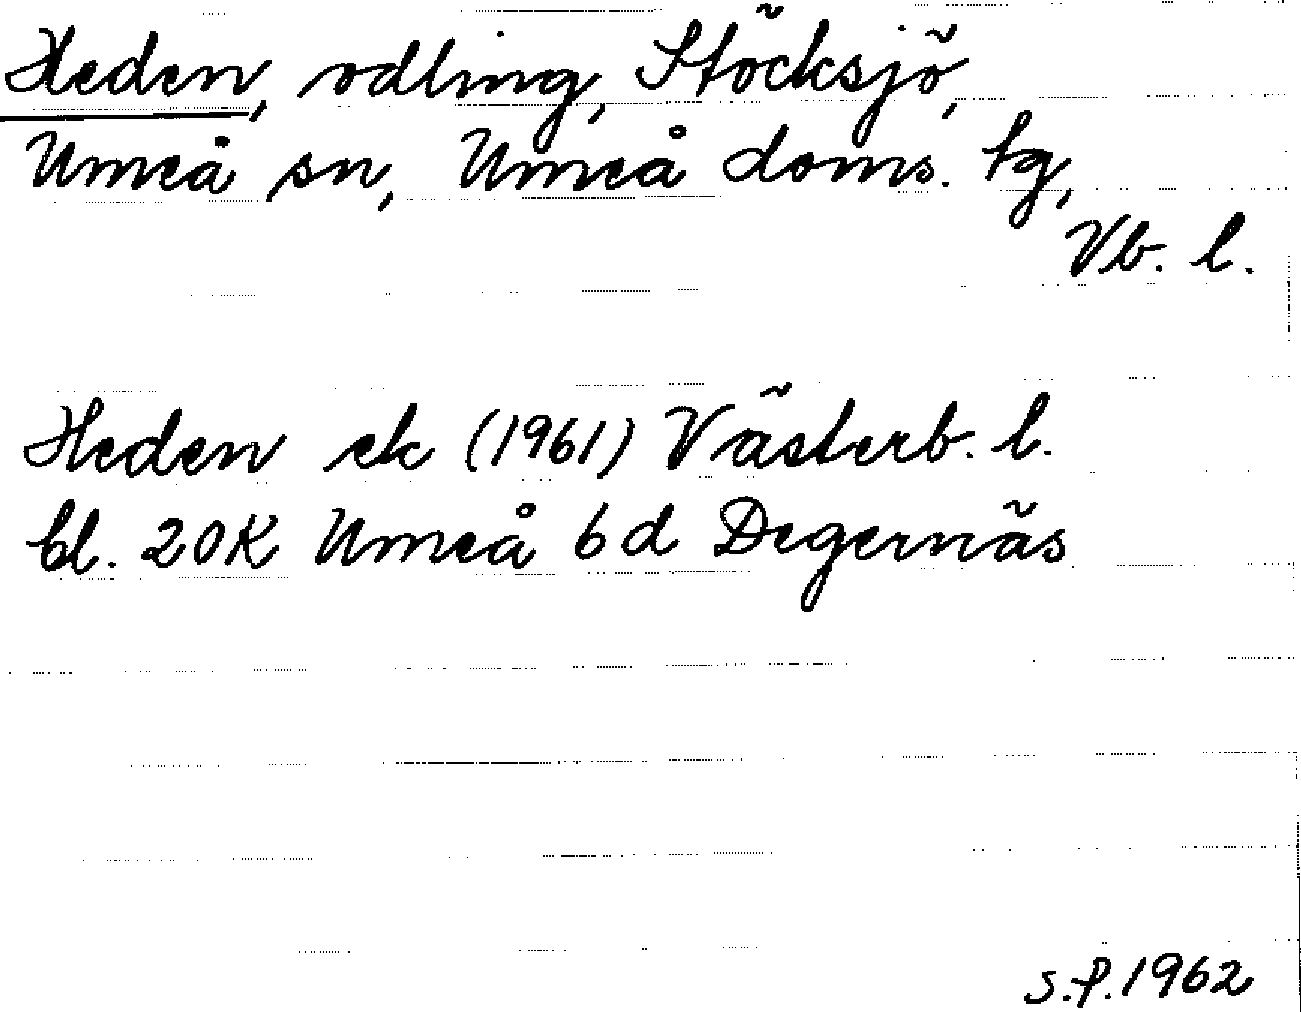 Heden, odling, Stöcksjö,
Umeå sn, Umeå doms. tg,
Vb. l.
Heden ek (1961) Västerb. l.
bl. 20K Umeå 6d Degernäs
S.P. 1962